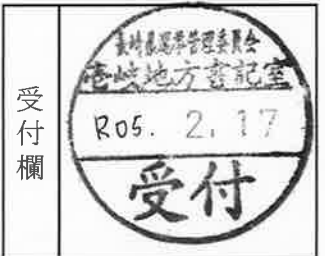 受付欄
長崎県選挙管理委員会
壱岐地方書記室
R05. 2. 17
受付